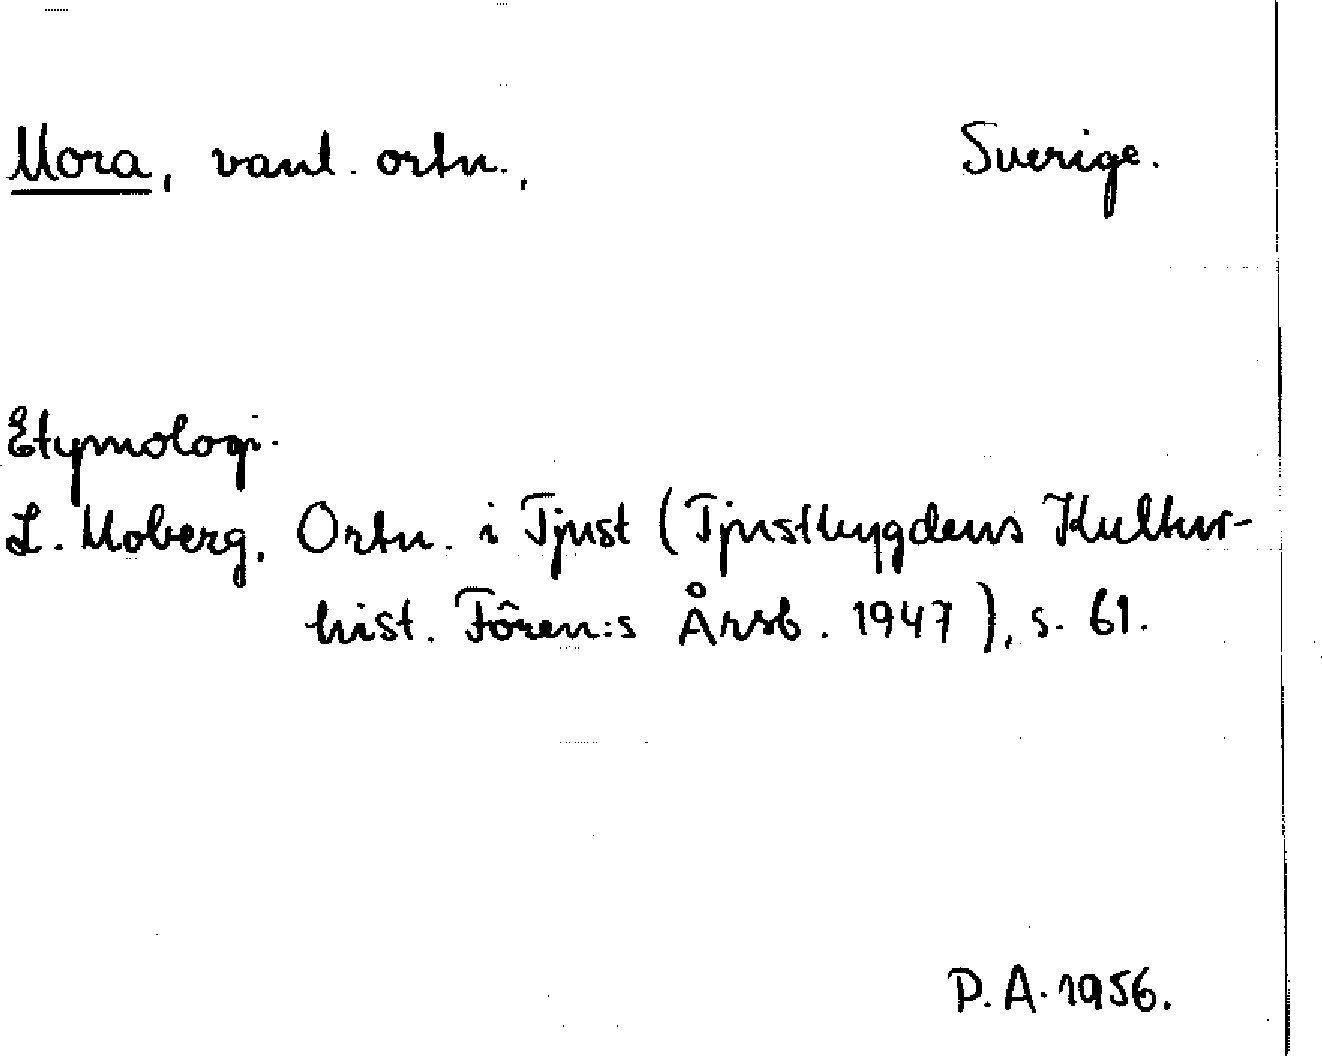 Mora, vanl. ortn., Sverige.
Etymologi.
L. Moberg, Ortn. i Tjust (Tjustbygdens Kultur-
hist. Fören:s Årsb. 1947), s. 61.
P.A. 1956.